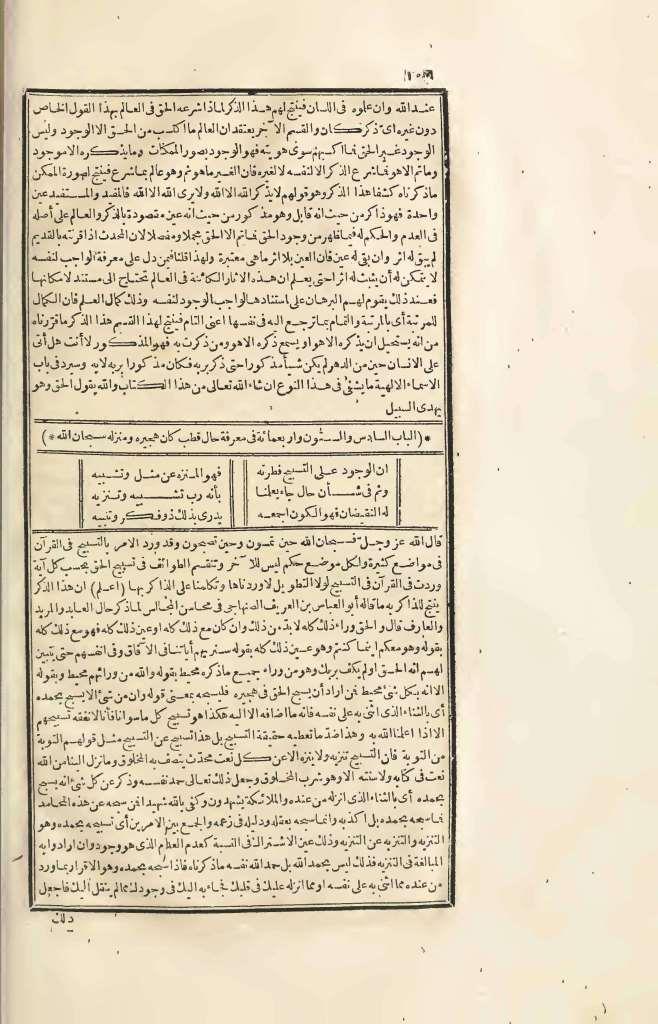 عند الله وان علوه فى اللسان فينتج لهم هذا الذكر لماذا شرعه الحق فى العالم بهذا القول الخاص
دون غيره اى ذكر كان والقسم الآخر يعتقد ان العالم ما اكتسب من الحق الا الوجود وليس
الوجود غير الحق فما اكسبهم سوى هويته فهو الوجود بصور الممكنات وما يذكره الا موجود
وما ثم الا هو فما شرع الذكر الا لنفسه لا لغيره فان الغير ما هو ثم وهو عالم بما شرع فينتج لصورة الممكن
ما ذكرناه كشفا هذا الذكر وهو قولهم لا يذكر الله الا الله ولا يرى الله الا الله فالمفيد والمستفيد عين
واحدة فهو ذاكر من حيث انه قابل وهو مذكور من حيث انه عين مقصودة بالذكر والعالم على أصله
فى العدم والحكم له فيما ظهر من وجود الحق فما ثم الا الحق مجملا ومفصلا لان المحدث اذا قرنته بالقديم
لم يبق له اثر وان بقى له عين فان العين بلا اثر ما هى معتبرة ولهذا قلنا فيمن دل على معرفة الواجب لنفسه
لا يتمكن له أن يثبت له اثر حتى يعلم ان هذه الآثار الكائنة فى العالم تحتاج الى مستند لامكانها
فعند ذلك يقوم لهم البرهان على استنادها لواجب الوجود لنفسه وذلك كمال العلم فان الكمال
للمرتبة أى بالمرتبة والتمام بما ترجع اليه فى نفسها اعنى التام فينتج لهذا القسم هذا الذكر ما قررناه
من انه يستحيل ان يذكره الا هو او يسمع ذكره الا هو ومن ذكرت به فهو المذكور لا أنت هل أتى
على الانسان حين من الدهر لم يكن شيأ مذكورا حتى ذكر بربه فكان مذكورا بربه لا به وسيرد فى باب
الاسماء الالهية ما يشفى فى هذا النوع ان شاء الله تعالى من هذا الكتاب والله يقول الحق وهو
يهدى السبيل
* (الباب السادس والستون وار بعمائة فى معرفة حال قطب كان هجيره ومنزله سبحان الله *)
ان الوجود على التسبيح فطرته فهو المنزه عن مثل وتشبيه
وثم فى شأن حال جاء يعلنا بأنه رب تشبيه وتنزيه
له النقيضان فهو الكون اجمعه يدرى بذلك ذو فكر وتنبيه
قال الله عز وجل فسبحان الله حين تمسون وحين تصبحون وقد ورد الامر بالتسبيح فى القرآن
فى مواضع كثيرة ولكل موضع حكم ليس للآخر وتنقسم الطوائف فى تسبيح الحق بحسب كل آية
وردت فى القرآن فى التسبيح لولا التطويل لاوردناها وتكلمنا على الذاكر بها (اعلم) ان هذا الذكر
ينتج للذاكر به ما قاله أبو العباس بن العريف الصنهاجى فى محاسن المجالس لما ذكر حال العابد والمريد
والعارف قال والحق وراء ذلك كله لا بد من ذلك وان كان مع ذلك كله او عين ذلك كله فهو مع ذلك كله
بقوله وهو معكم اينما كنتم وهو عين ذلك كله بقوله سنريهم آياتنا فى الآفاق وفى انفسهم حتى يتبين
لهم انه الحق اولم يكف بربك وهو من وراء جميع ما ذكره محيط بقوله والله من ورائهم محيط وبقوله
الا انه بكل شئ محيط فمن اراد أن يسبح الحق فى هجيره فليسبحه بمعنى قوله وان من شئ الا يسبح بحمده
أى بالثناء الذى اثنى به على نفسه فانه ما اضافه الا اليه هكذا هو تسبيح كل ما سوانا فانا لا نفقه تسبيحهم
الا اذا اعلمنا الله به وهذا ضد ما تعطيه حقيقة التسبيح بل هذا تسبيح عن التسبيح مثل قولهم التوبة
من التوبة فان التسبيح تنزيه ولا ينزه الا عن كل نعت محدث يتصف به المخلوق وما نزل الينا من الله
نعت فى كتابه ولا سنته الا وهو شرب المخلوق وجعل ذلك تعالى حمد نفسه وذكر عن كل شئ انه يسبح
بحمده أى بالثناء الذى انزله من عنده والملائكة يشهدون وكفى بالله شهيدا فمن سبحه عن هذه المحامد
فما سبحه بحمده بل اكذبه وانما سبحه بعقله ودليله فى زعمه والجمع بين الامرين أى تسبيحه بحمده وهو
التنزيه والتنزيه عن التنزيه وذلك عين الاشتراك فى النسبة كعدم العدم الذى هو وجود وان ارادوا به
المبالغة فى التنزيه فذلك ليس بحمد الله بل حمد الله نفسه ما ذكرناه فاذا سبحه بحمده وهو الاقرار بما ورد
من عنده مما اثنى به على نفسه او مما انزله عليك فى قلبك فجاء به اليك فى وجودك مما لم ينقل اليك فاجعل
ذلك